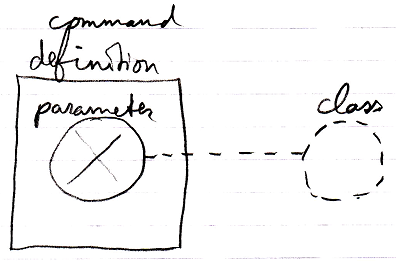 command
definition
parameter
class